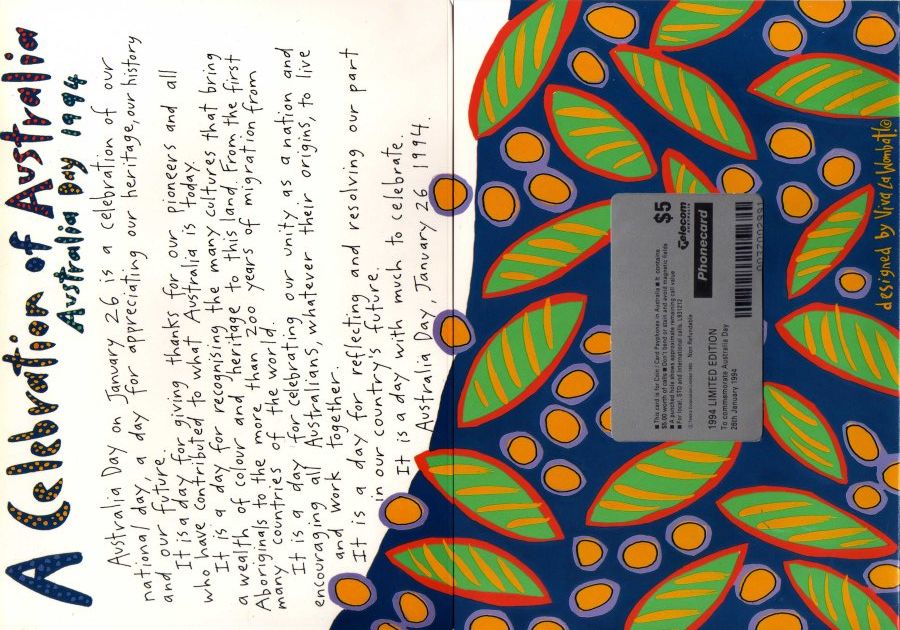 A Celebration of Australia
Australia Day 1994
Australia Day on January 26 is a celebration of our
national day, a day for appreciating our heritage, our history
and our future.
It is a day for giving thanks for our pioneers and all
who have contributed to what Australia is today.
It is a day for recognising the many cultures that bring
a wealth of colour and heritage to this land. From the first
Aboriginals to the more than 200 years of migration from
many countries of the world.
It is a day for celebrating our unity as a nation and
encouraging all Australians, whatever their origins, to live
and work together.
It is a day for reflecting and resolving our part
in our country's future.
It is a day with much to celebrate.
Australia Day, January 26 1994.
■ This card is for Coin / Card Payphones in Australia ■ It contains
$5.00 worth of calls ■ Don't bend or stain and avoid magnetic fields
■ A punched hole shows approximate remaining call value
■ For local, STD and international calls.
Non Refundable
$5
Telecom
AUSTRALIA
Phonecard
1994 LIMITED EDITION
To commemorate Australia Day
26th January 1994
designed by Viva La Wombat! ©